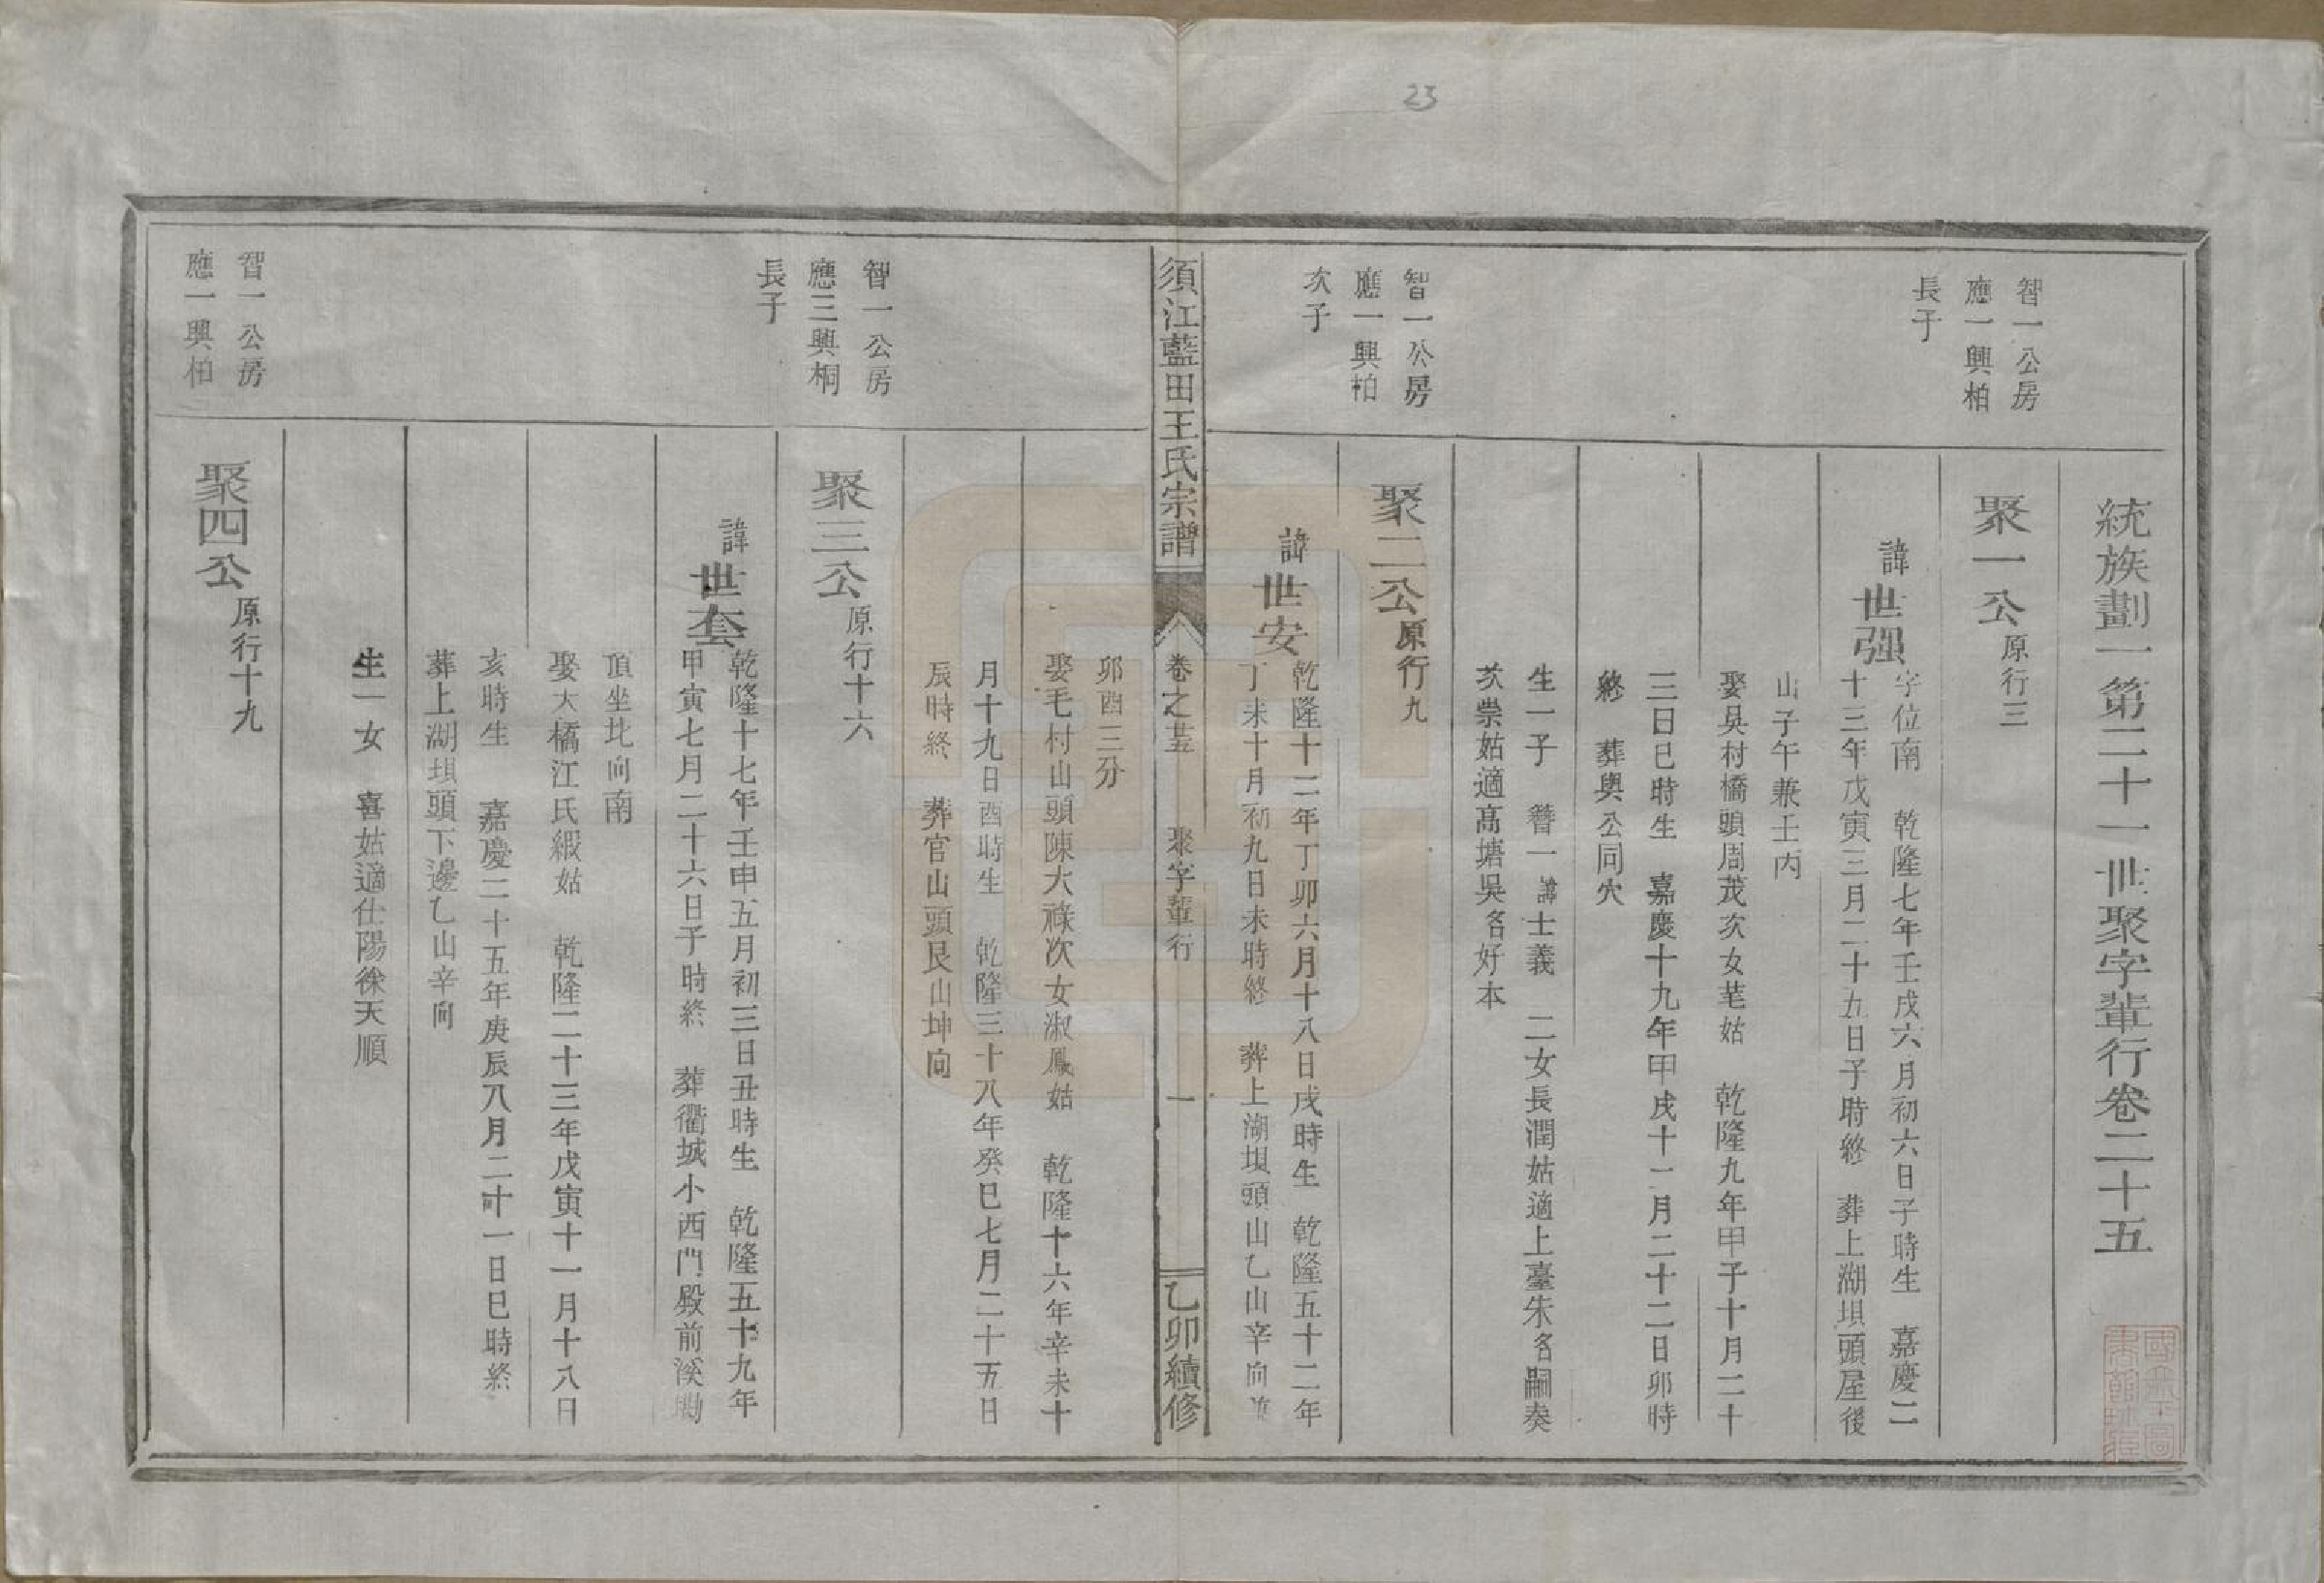 23
統族劃一第二十一世聚字輩行卷二十五
智一公房
應一興柏
長子
聚一公原行三
諱世强
字位南 乾隆七年壬戌六月初六日子時生 嘉慶二
十三年戊寅三月二十五日子時終 葬上湖垻頭屋後
山子午兼壬丙
娶吳村橋頭周茂次女芼姑 乾隆九年甲子十月二十
三日巳時生 嘉慶十九年甲戌十一月二十二日卯時
終 葬與公同穴
生一子 贅一諱士義 二女長潤姑適上臺朱名嗣奏
次崇姑適髙塘吳名好本
智一公房
應一興柏
次子
聚二公原行九
諱世安
乾隆十二年丁卯六月十八日戌時生 乾隆五十二年
丁未十月初九日未時終 葬上湖垻頭山乙山辛向兼
須江藍田王氏宗譜
卷之廿五 聚字輩行 一
乙卯續修
卯酉三分
娶毛村山頭陳大祿次女淑鳳姑 乾隆十六年辛未十
月十九日酉時生 乾隆三十八年癸巳七月二十五日
辰時終 葬官山頭艮山坤向
智一公房
應三興桐
長子
聚三公原行十六
諱世套
乾隆十七年壬申五月初三日丑時生 乾隆五十九年
甲寅七月二十六日子時終 葬衢城小西門殿前溪
頂坐北向南
娶大橋江氏緞姑 乾隆二十三年戊寅十一月十八日
亥時生 嘉慶二十五年庚辰八月二十一日巳時終
葬上湖垻頭下邊乙山辛向
生一女 喜姑適仕陽徐天順
智一公房
應一興柏
聚四公原行十九